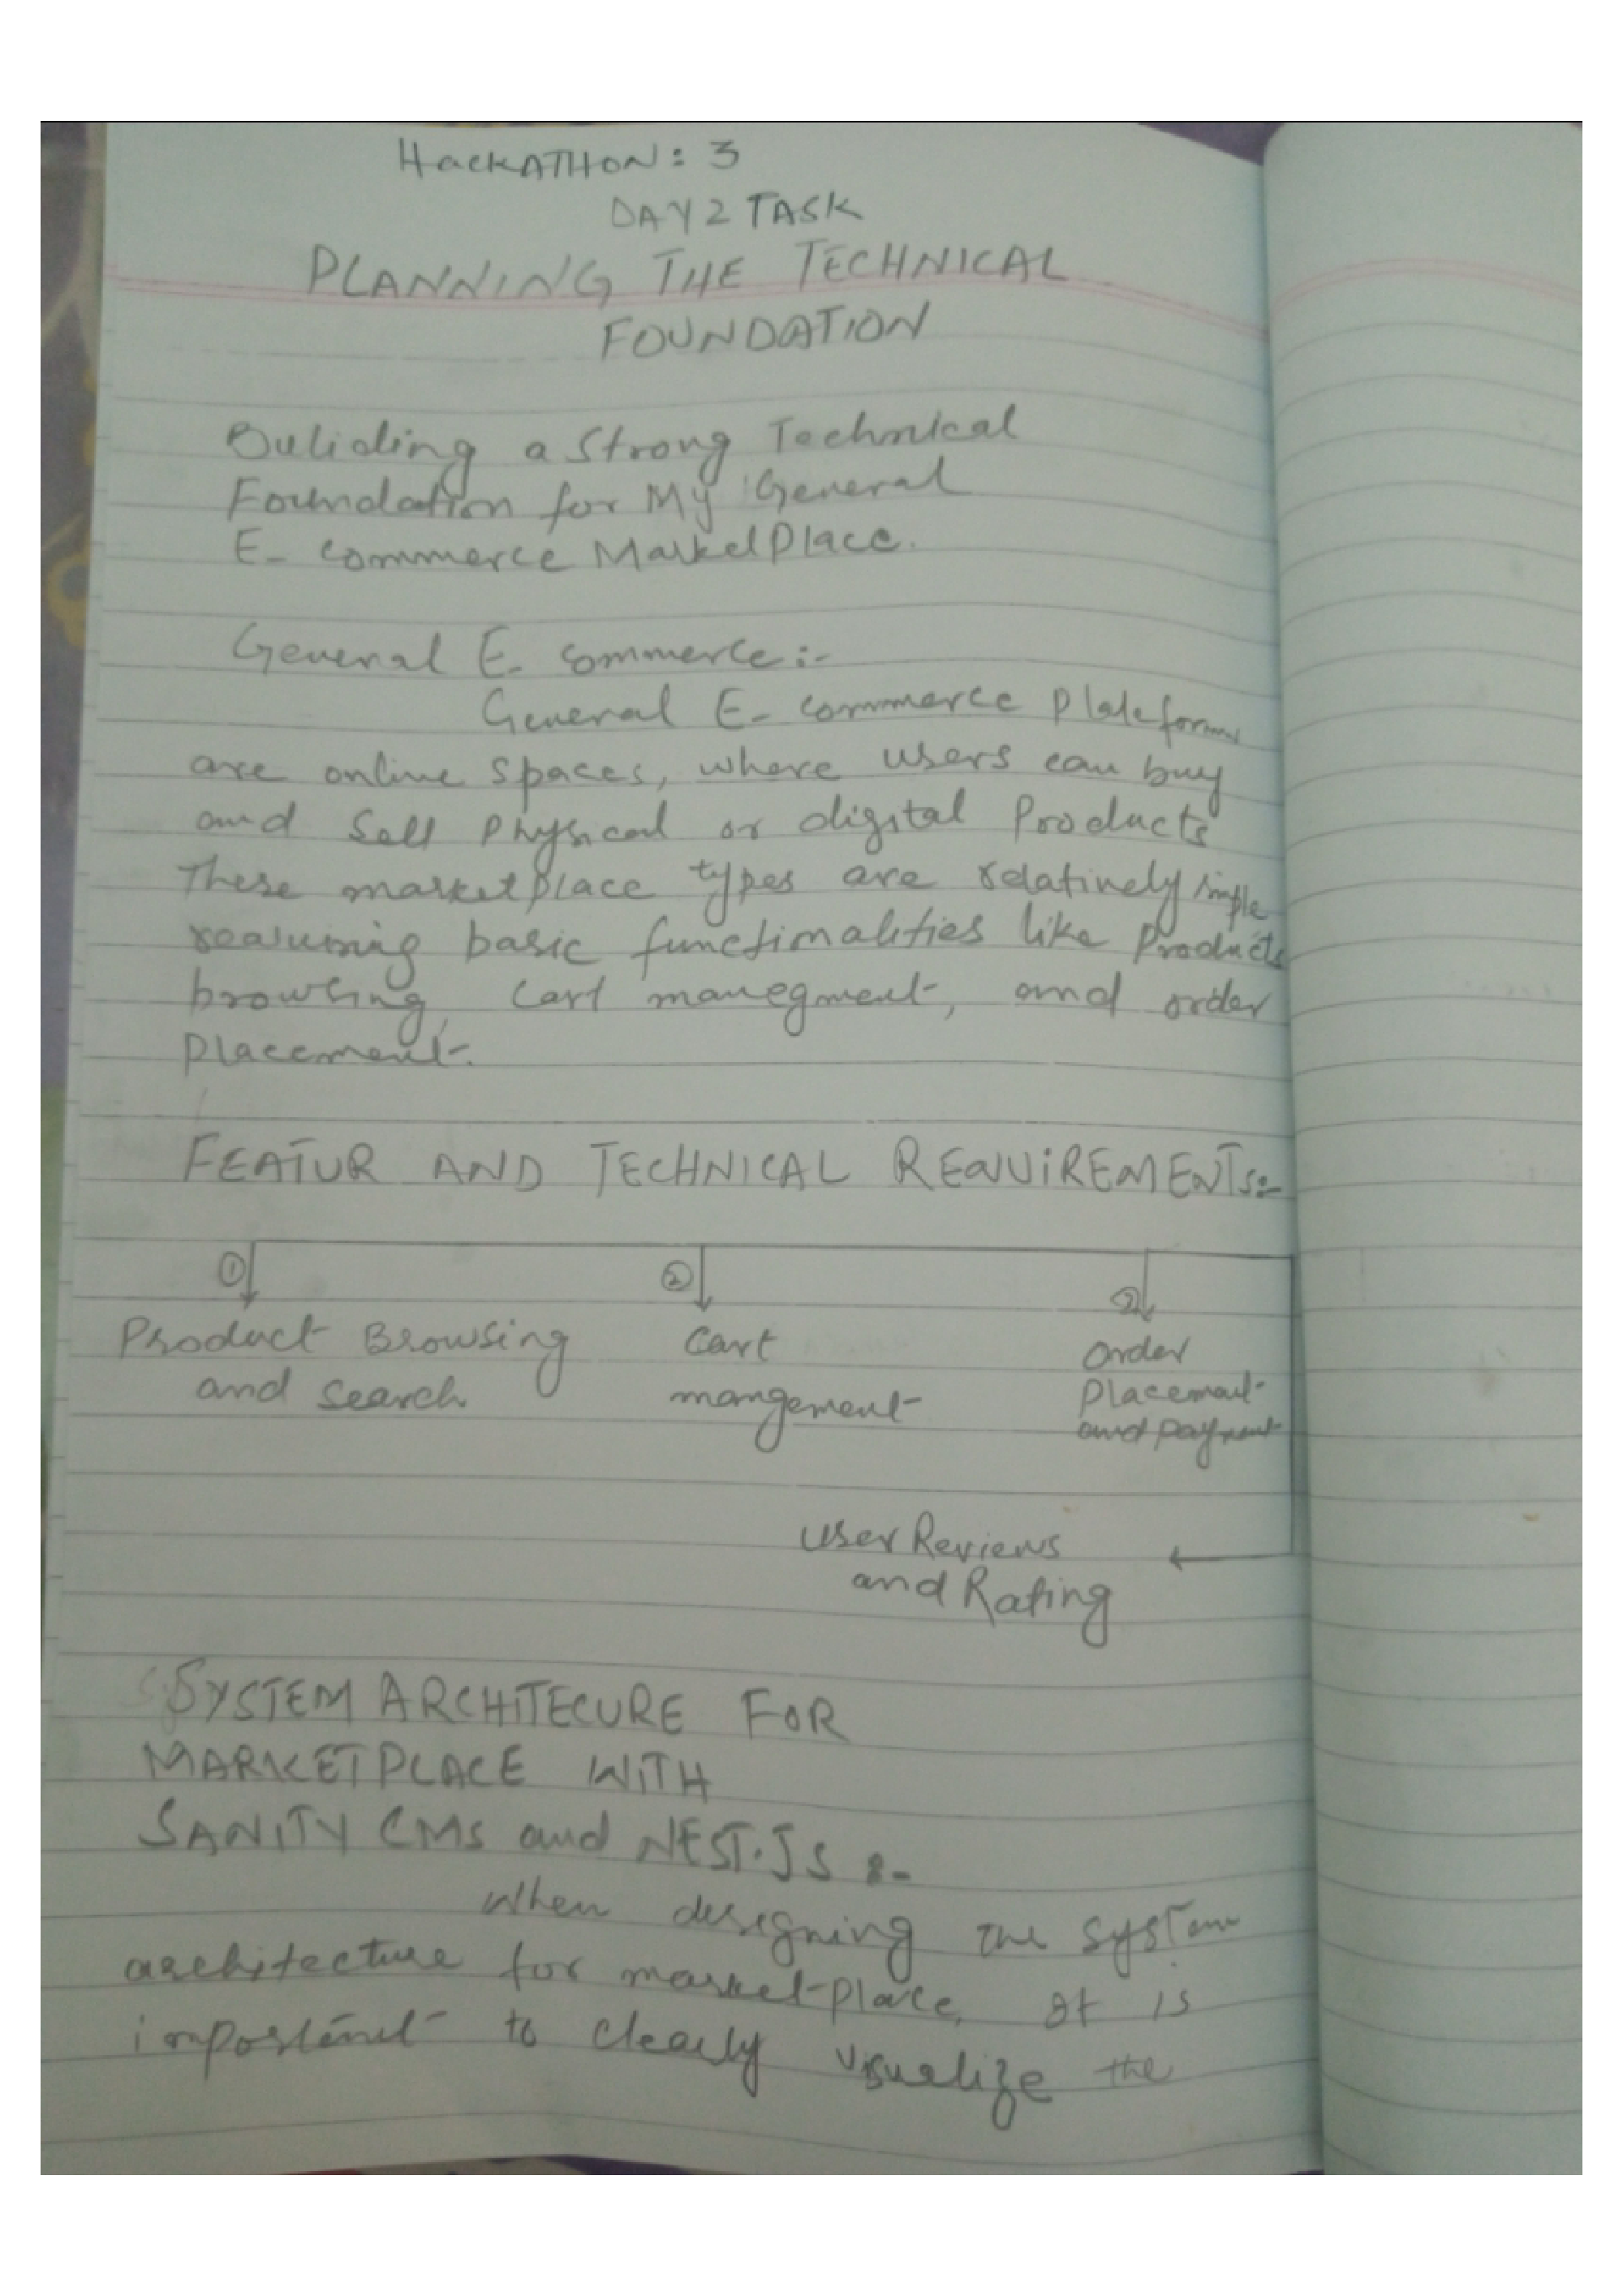 HackATHON: 3
DAY 2 TASK
PLANNING THE TECHNICAL
FOUNDATION
Buliding a Strong Technical
Foundation for My General
E- commerce MarketPlace.
General E- commerce:-
General E- commerce Plateforms
are online spaces, where users can buy
and Sell Physical or digital Products
These marketplace types are relatively simple
requiring basic functionalities like Products
browsing, Cart manegment, and order
Placement.
FEATUR AND TECHNICAL REQUIREMENTS:-
① ② ②
Product Browsing Cart order
and search. mangement Placement
and payment
User Reviews
and Rating
SYSTEM ARCHITECURE FOR
MARKETPLACE WITH
SANITY CMS and NEST.JS :-
When designing the system
architecture for market-place, It is
important to clearly visualize the